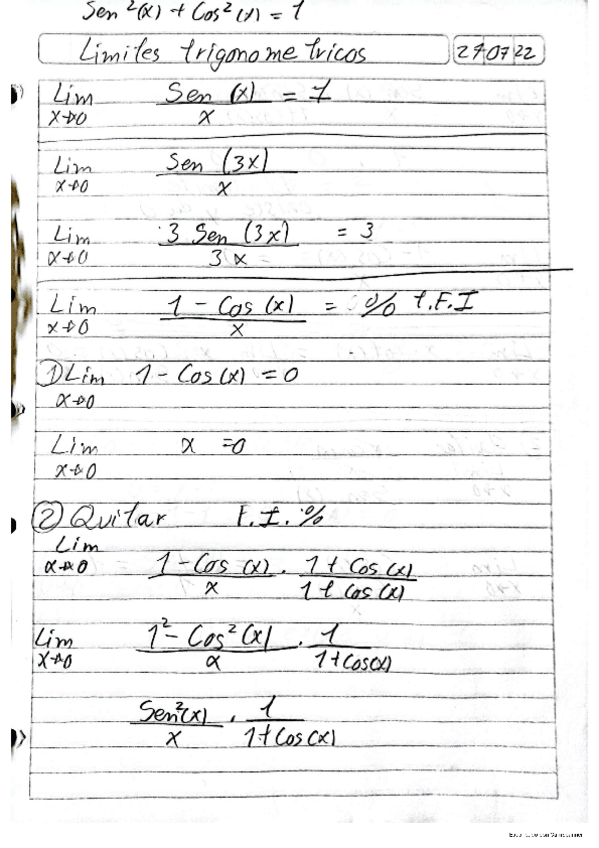 Sen²(x) + Cos²(x) = 1
Limites trigonometricos 27 07 22
Lim x→0 Sen (x) / x = 1
Lim x→0 Sen (3x) / x
Lim x→0 3 Sen (3x) / 3x = 3
Lim x→0 1 - Cos (x) / x = 0/0 t.F.I
① Lim x→0 1 - Cos (x) = 0
Lim x→0 x = 0
② Quitar F.I. 0/0
Lim x→0 1 - Cos (x) / x . 1 + Cos (x) / 1 + Cos (x)
Lim x→0 1² - Cos² (x) / x . 1 / 1 + Cos(x)
Sen²(x) / x . 1 / 1 + Cos(x)